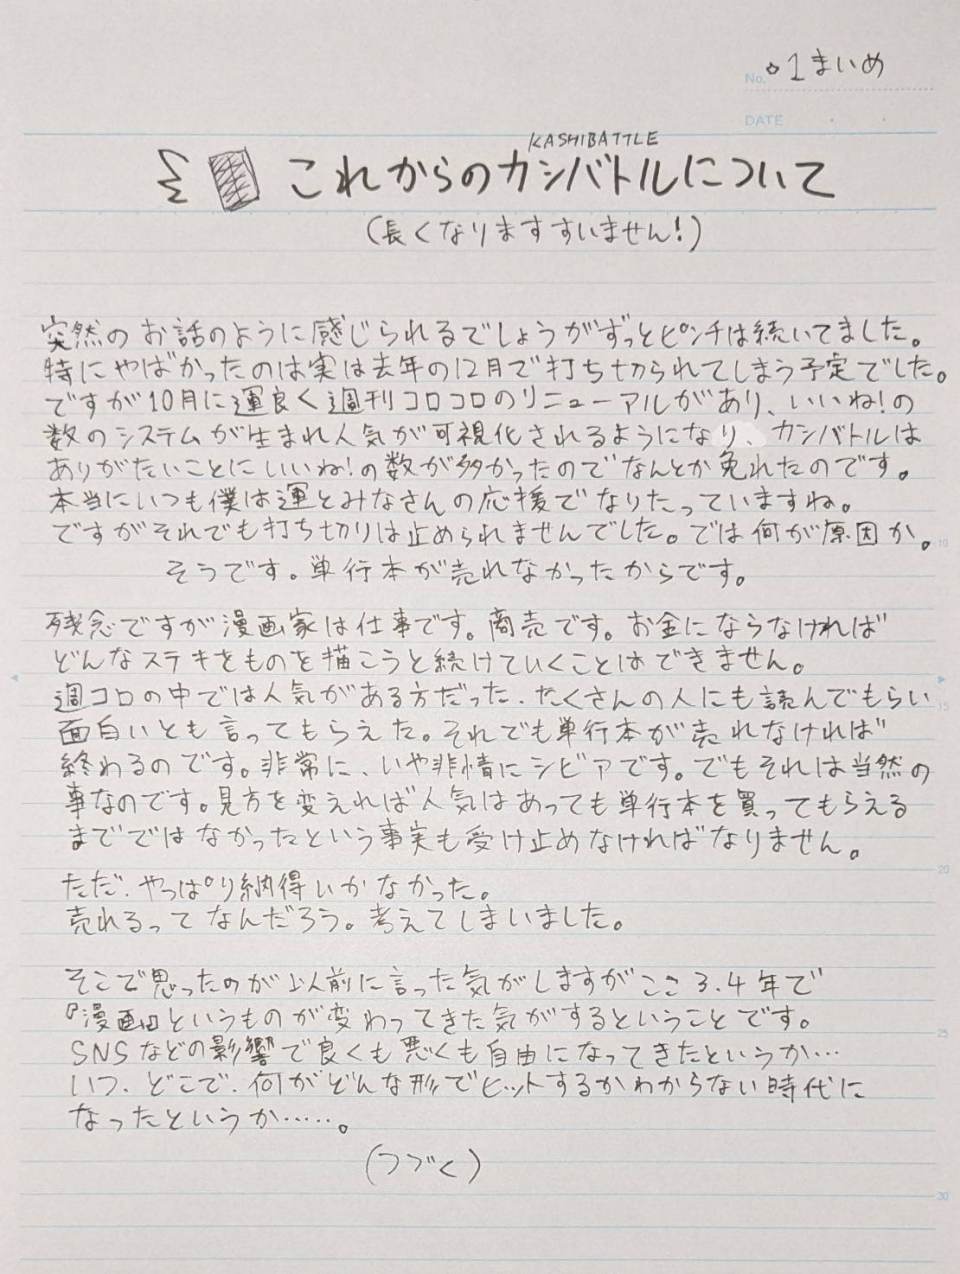 No. ☆1まいめ
DATE
KASHIBATTLE
これからのカシバトルについて
(長くなりますすいません!)
突然のお話のように感じられるでしょうがずっとピンチは続いてました。
特にやばかったのは実は去年の12月で打ち切られてしまう予定でした。
ですが10月に運良く週刊コロコロのリニューアルがあり、いいね!の
数のシステムが生まれ人気が可視化されるようになり、カシバトルは
ありがたいことにいいね!の数が多かったのでなんとか免れたのです。
本当にいつも僕は運とみなさんの応援でなりたっていますね。
ですがそれでも打ち切りは止められませんでした。では何が原因か。
10
そうです。単行本が売れなかったからです。
残念ですが漫画家は仕事です。商売です。お金にならなければ
どんなステキをものを描こうと続けていくことはできません。
週コロの中では人気がある方だった、たくさんの人にも読んでもらい
15
面白いとも言ってもらえた。それでも単行本が売れなければ
終わるのです。非常に、いや非情にシビアです。でもそれは当然の
事なのです。見方を変えれば人気はあっても単行本を買ってもらえる
まででではなかったという事実も受け止めなければなりません。
20
ただ、やっぱり納得いかなかった。
売れるってなんだろう。考えてしまいました。
そこで思ったのが以前に言った気がしますがここ3.4年で
『漫画』というものが変わってきた気がするということです。
25
SNSなどの影響で良くも悪くも自由になってきたというか…
いつ、どこで、何がどんな形でヒットするかわからない時代に
なったというか……。
(つづく)
30